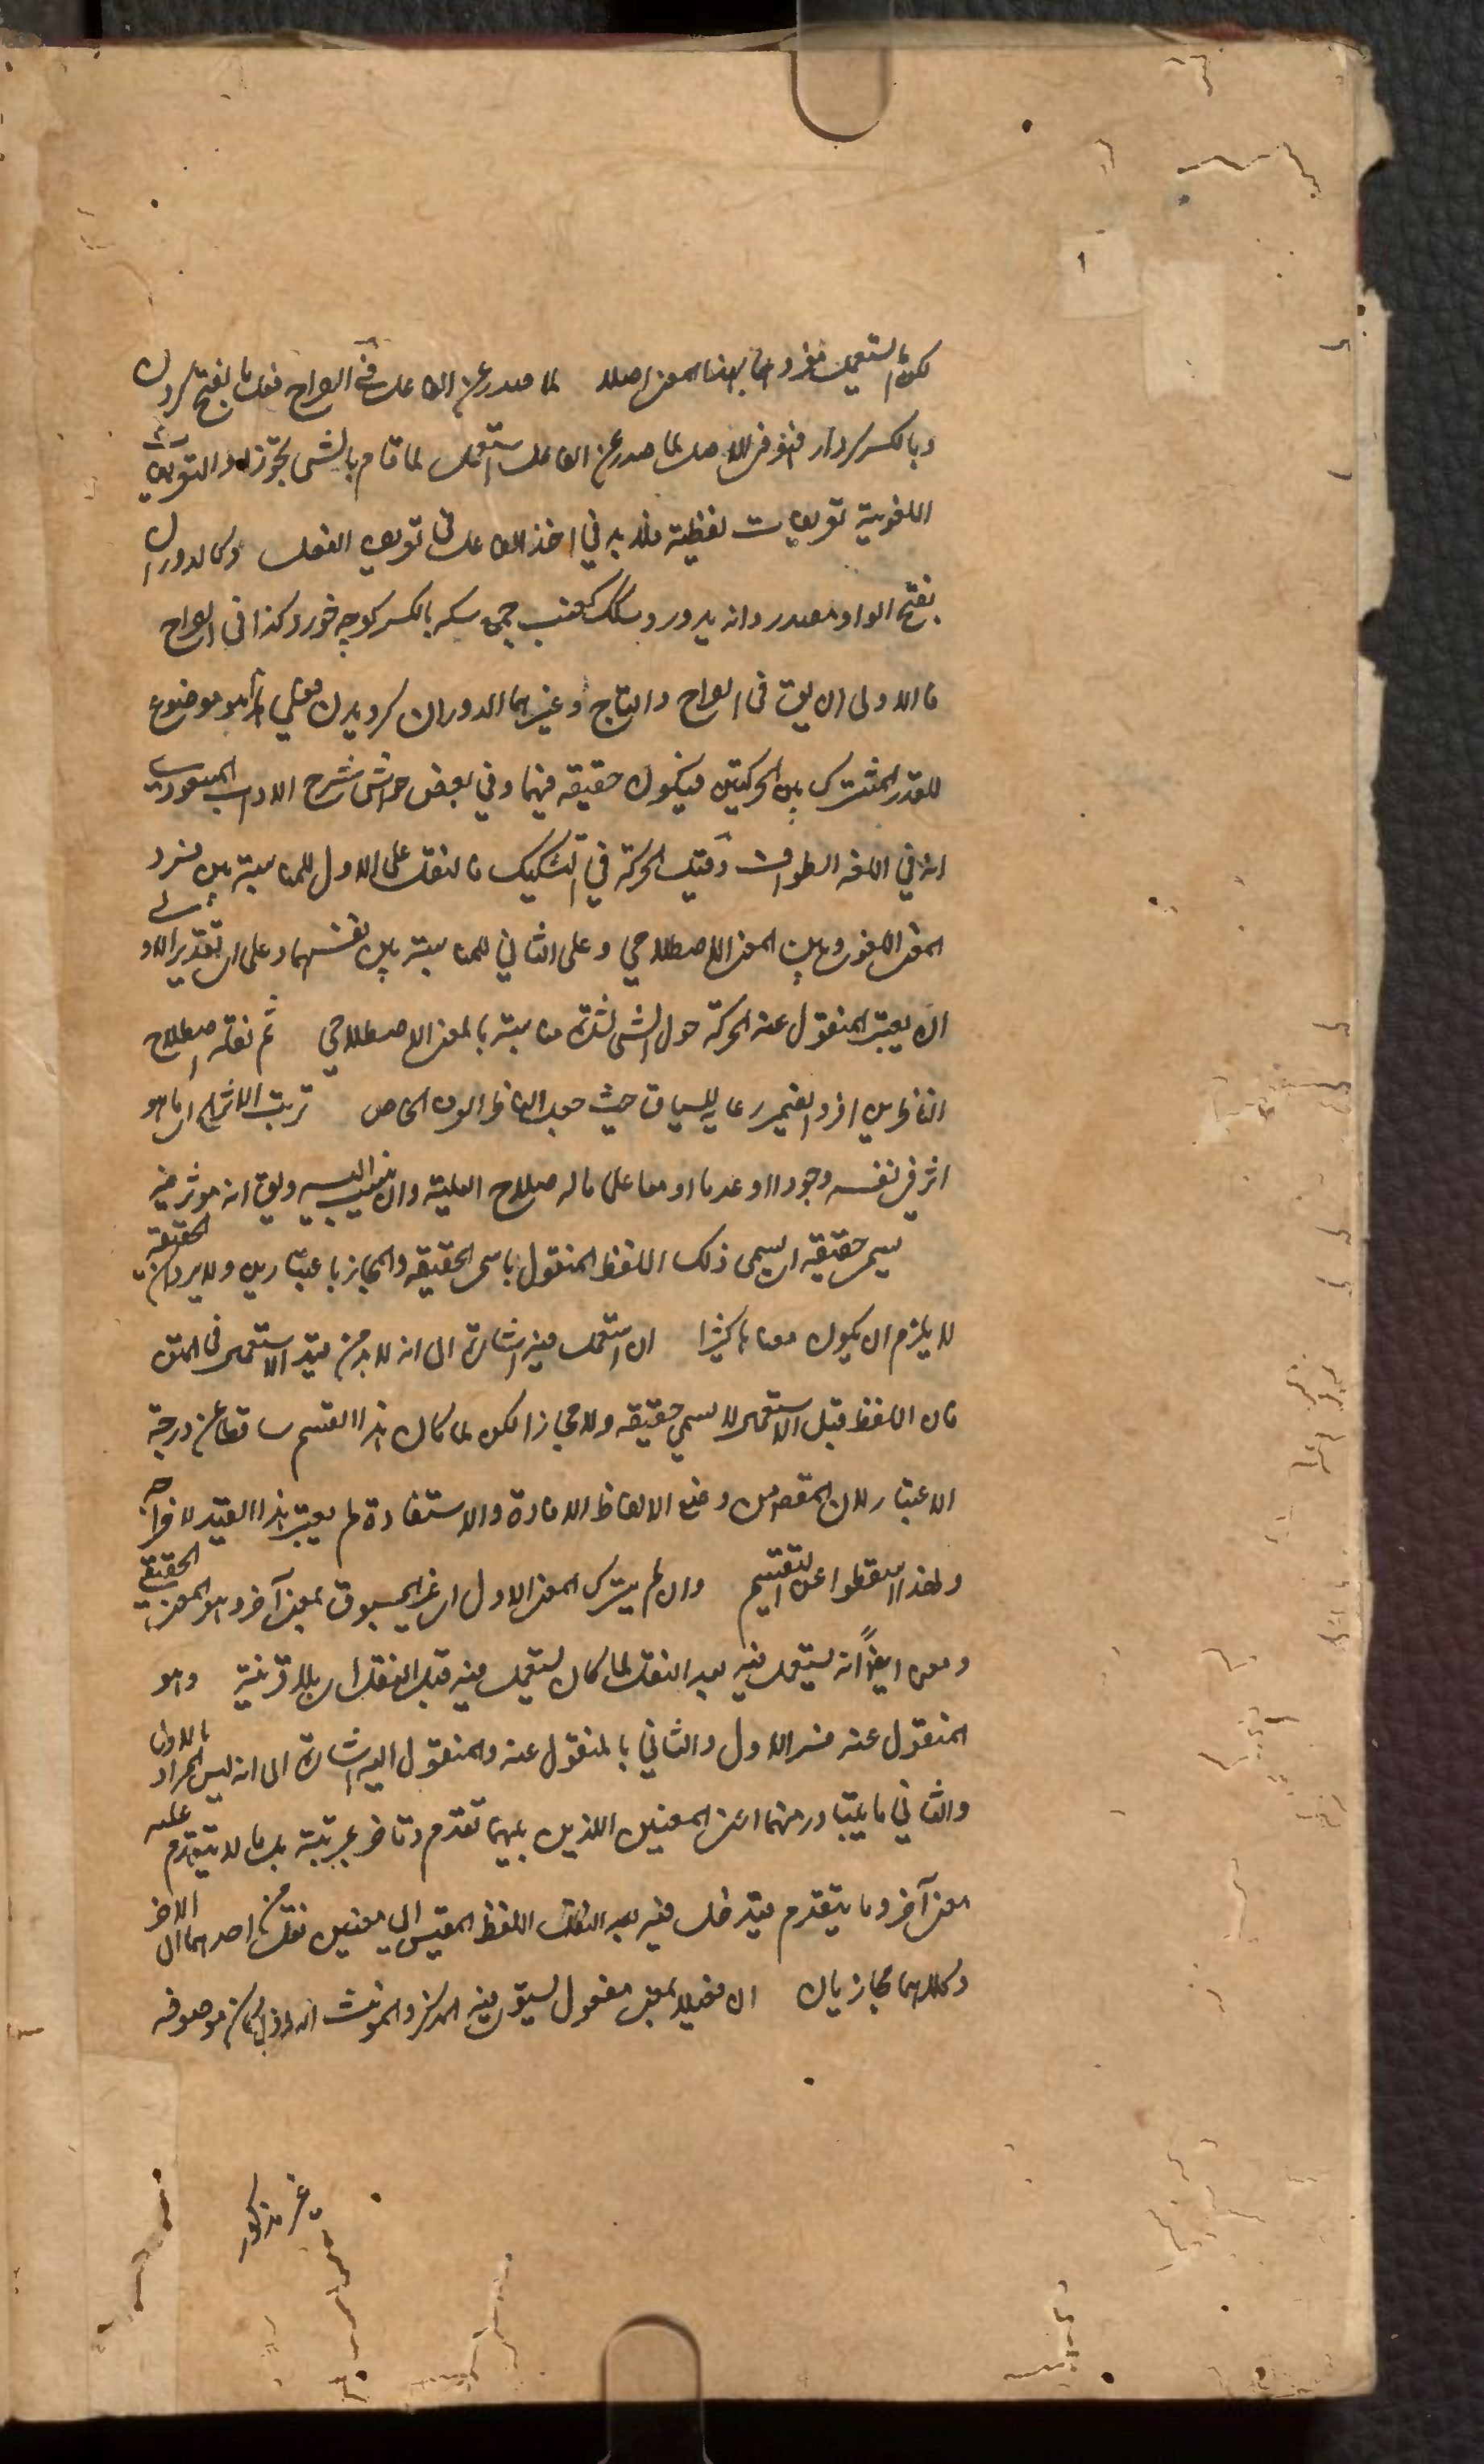 ١
لكن لم يستعمل مفردها بهذا المعنى اصلا لما صدر عن الفاعل في الصراح فعل بالفتح كردن
وبالكسر كردار فهو في الاصل لما صدر عن الفاعل استعمل لما قام بالشي تجوزا والتعريفات
اللغوية تعريفات لفظية فلا بد في اخذ الفاعل في تعريف الفعل وكالدوران
بفتح الواو مصدر دار يدور وسكك كعنب جمع سكه بالكسر كوچه خورد كذا في الصراح
فالاولى ان يق في الصراح والتاج وغيرهما الدوران كرديدن فعلى هذا هو موضوع
للقدر المشترك بين الحركتين فيكون حقيقه فيهما وفي بعض حواشي شرح الاداب المسعودية
انه في اللغه الطواف وقيل الحركة في السكك فالنقل على الاول للمناسبة بين فرد
المعنى اللغوي وبين المعنى الاصطلاحي وعلى الثاني للمناسبة بين نفسهما وعلى التقدير الاولى
ان يعتبر المنقول عنه الحركة حول الشي لشدة مناسبة بالمعنى الاصطلاحي ثم نقله اصطلاح
الناظرين افرد الضمير رعايه للسياق حيث جعل الناظر العرف الخاص ترتب الاثر اي ما هو
اثر في نفسه وجودا او عدما او معا على ما له صلاح العلية وان ينسب اليه ويق انه موثر فيه
سمي حقيقه اي يسمى ذلك اللفظ المنقول باسمي الحقيقه والمجاز باعتبارين ولا يرد ان الحقيقة
لا يلزم ان يكون معناها كثيرا ان استعمل فيه اشارة الى انه لا بد من قيد الاستعمال في المتن
فان اللفظ قبل الاستعمال لا يسمى حقيقه ولا مجازا لكن لما كان هذا القسم ساقطا عن درجة
الاعتبار لان المقصود من وضع الالفاظ الافادة والاستفادة لم يعتبر هذا القيد لاخراجه
ولهذا اسقطوا عن التقسيم وان لم يترك المعنى الاول اي غير المسبوق بمعنى آخر وهو المعنى الحقيقي
ومعنى ايضًا انه يستعمل فيه بعد النقل لما كان يستعمل فيه قبل النقل اي بلا قرينة وهو
المنقول عنه فسر الاول والثاني بالمنقول عنه والمنقول اليه اشارة الى انه ليس المراد بالاول
والثاني ما يتبادر منهما اعني المعنيين اللذين بينهما تقدم وتاخر بمرتبة بل ما لا يتقدم عليه
معنى آخر وما يتقدم فيدخل فيه بعد النقل اللفظ المقيس الى معنيين نقل من احدهما الى الاخر
وكلاهما مجازيان ان فعيلا بمعنى مفعول يستوي فيه المذكر والمونث اذا كان موصوفه
غير مذكور